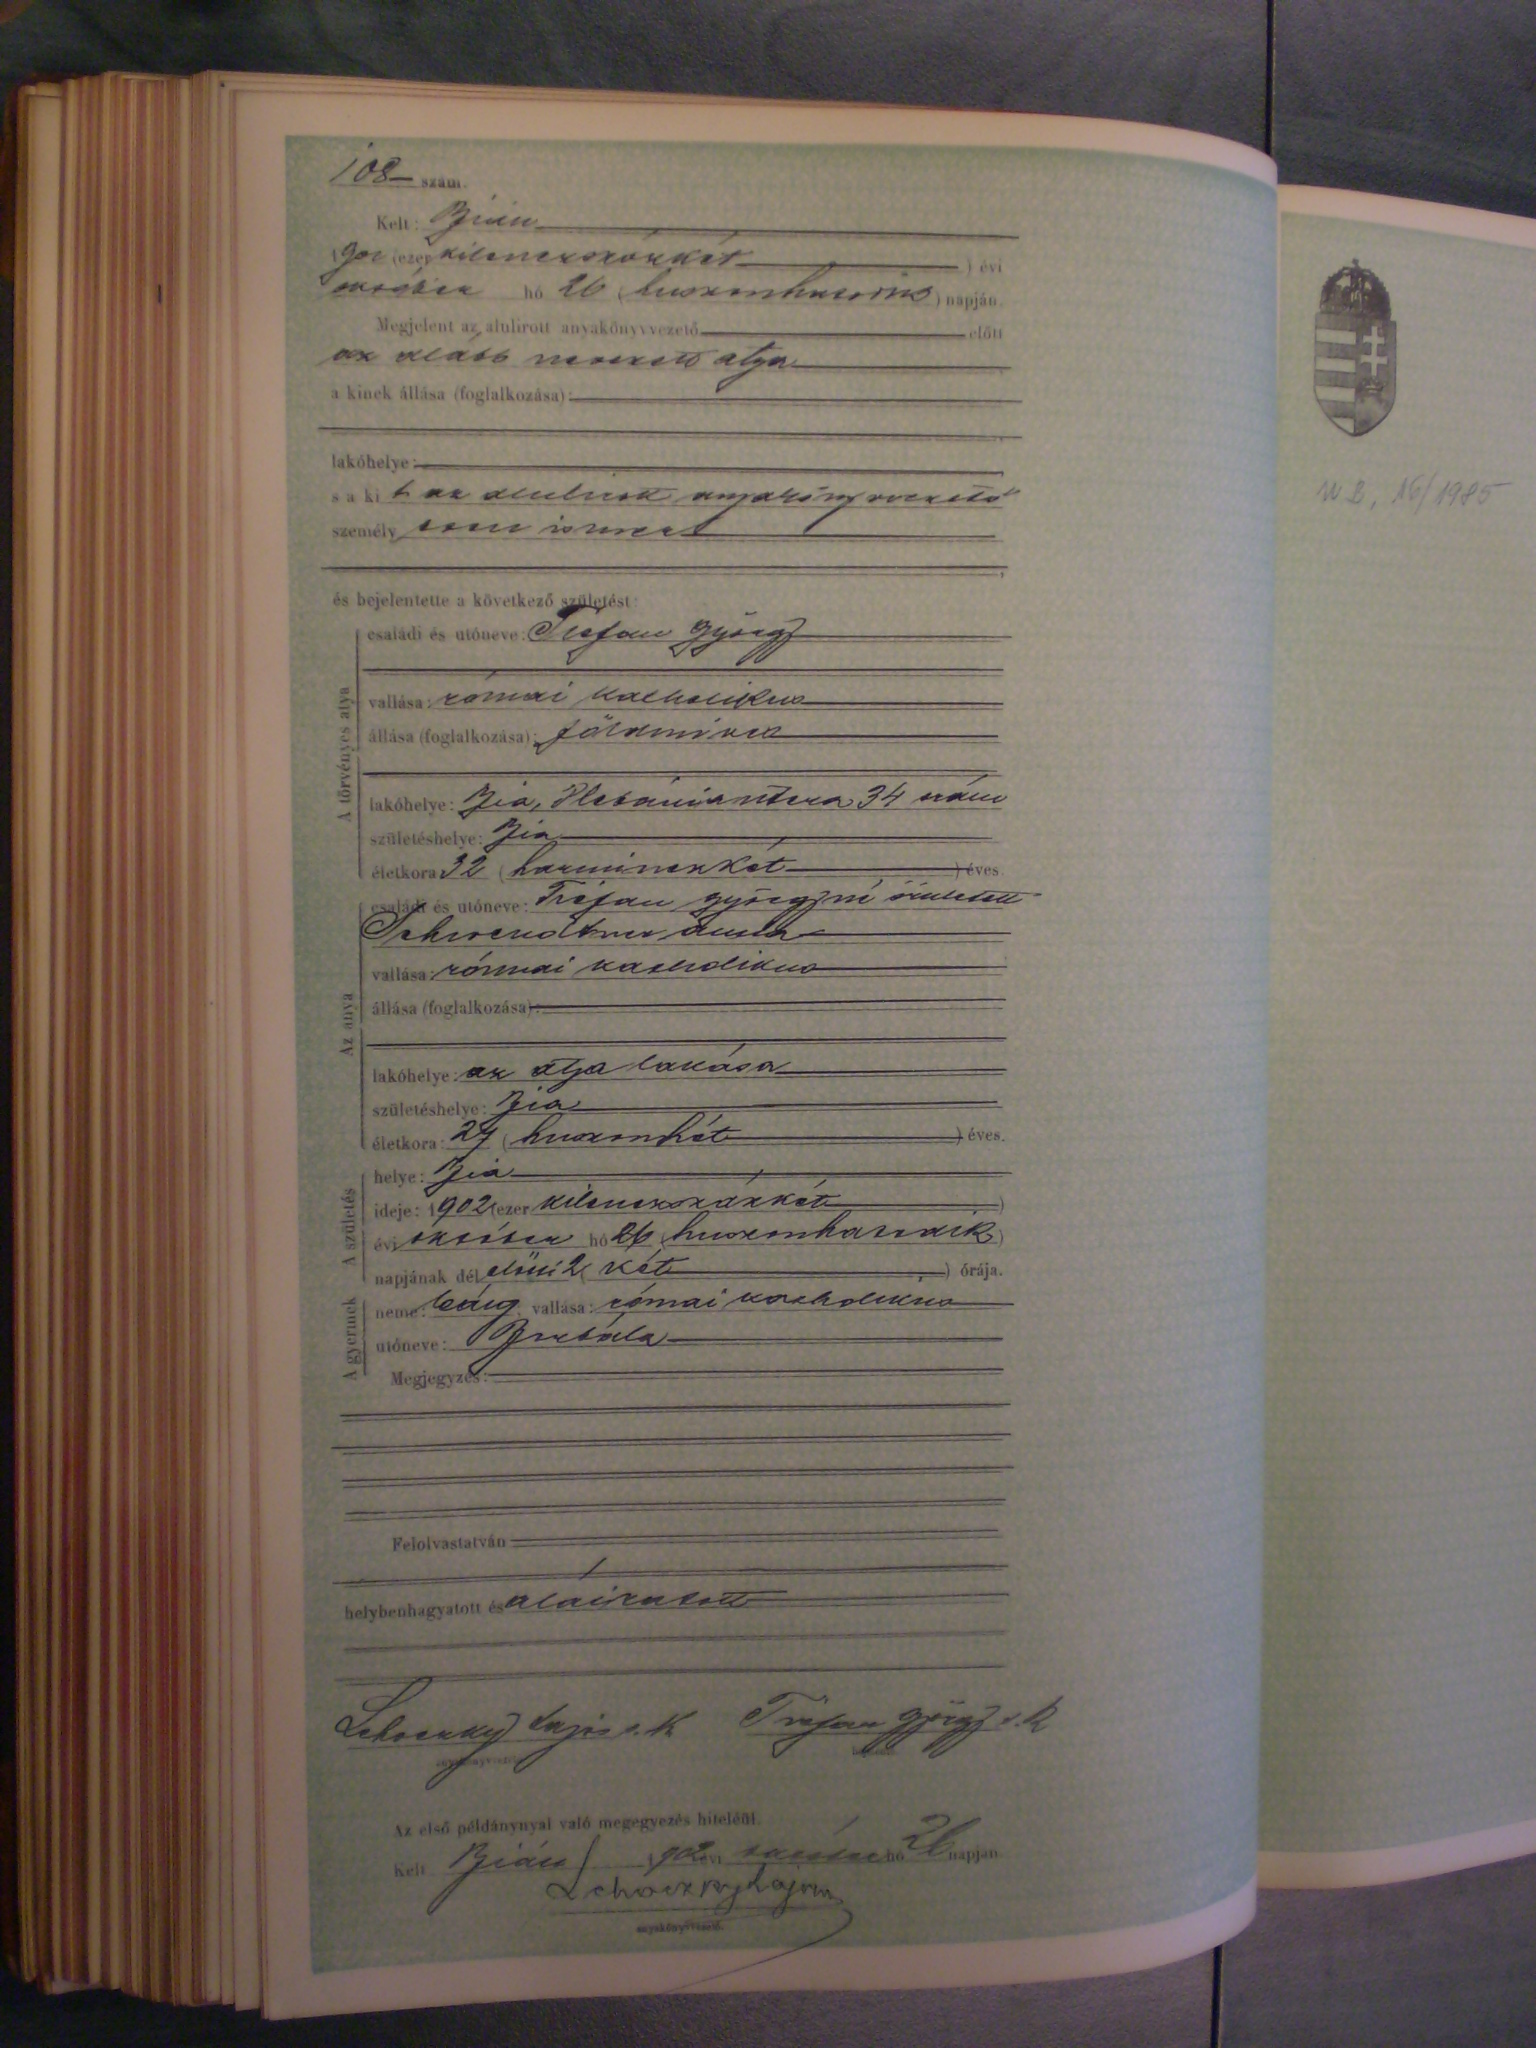 108 szám.
Kelt: Bián
1902 (ezer kilenczszázkét) évi
október hó 26 (huszonhatodik) napján.
Megjelent az alulirott anyakönyvvezető előtt
az alább nevezett atya
a kinek állása (foglalkozása):
lakóhelye:
s a ki t az alulirott anyakönyvvezető
személy esen ismer
és bejelentette a következő születést:
A törvényes atya
családi és utóneve: Trefan György
vallása: római katholikus
állása (foglalkozása): földmíves
lakóhelye: Bia, 34 szám
születéshelye: Bia
életkora 32 (harminczkét) éves.
Az anya
családi és utóneve: Trefan Györgyné született
Schwendtner Anna
vallása: római katholikus
állása (foglalkozása):
lakóhelye: az atya lakása
születéshelye: Bia
életkora: 27 (huszonhét) éves.
A születés
helye: Bia
ideje: 1902 (ezer kilenczszázkét)
évi október hó 26 (huszonhatodik)
napjának dél előtti 2 (két) órája.
A gyermek
neme: leány, vallása: római katholikus
utóneve: Borbála
Megjegyzés:
Felolvastatván
helybenhagyatott és aláiratott
Lehoczky Lajos s. k. Trefan György s. k.
anyakönyvvezető.
Az első példánynyal való megegyezés hiteléül.
Kelt Bián 1902 évi október hó 26 napján
Lehoczky Lajos
anyakönyvvezető.
16/1985